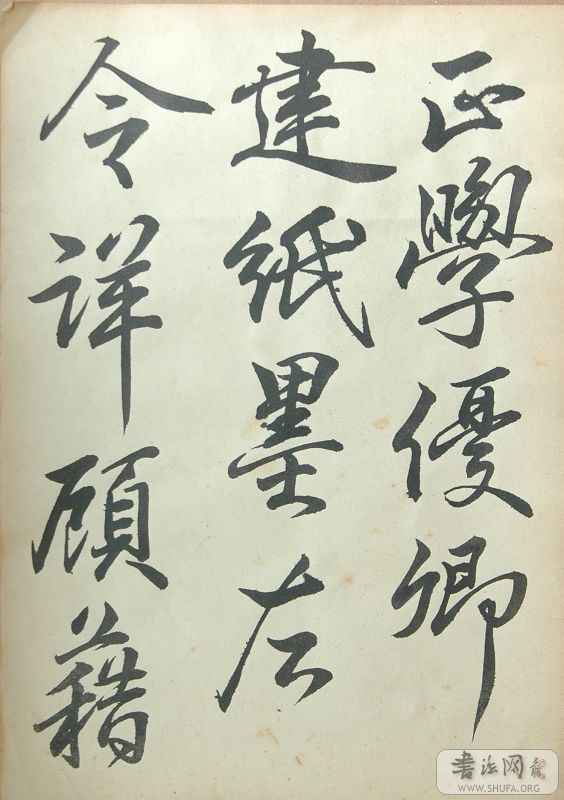 正學優卿
建紙墨左
令詳顧藉
書法网
WWW.SHUFA.ORG